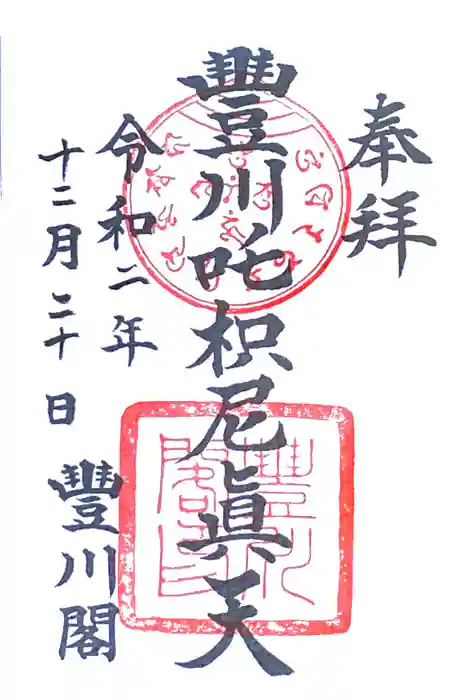 奉拝
豐川吒枳尼眞天
令和二年
十二月二十日
豐川閣
豐川閣印